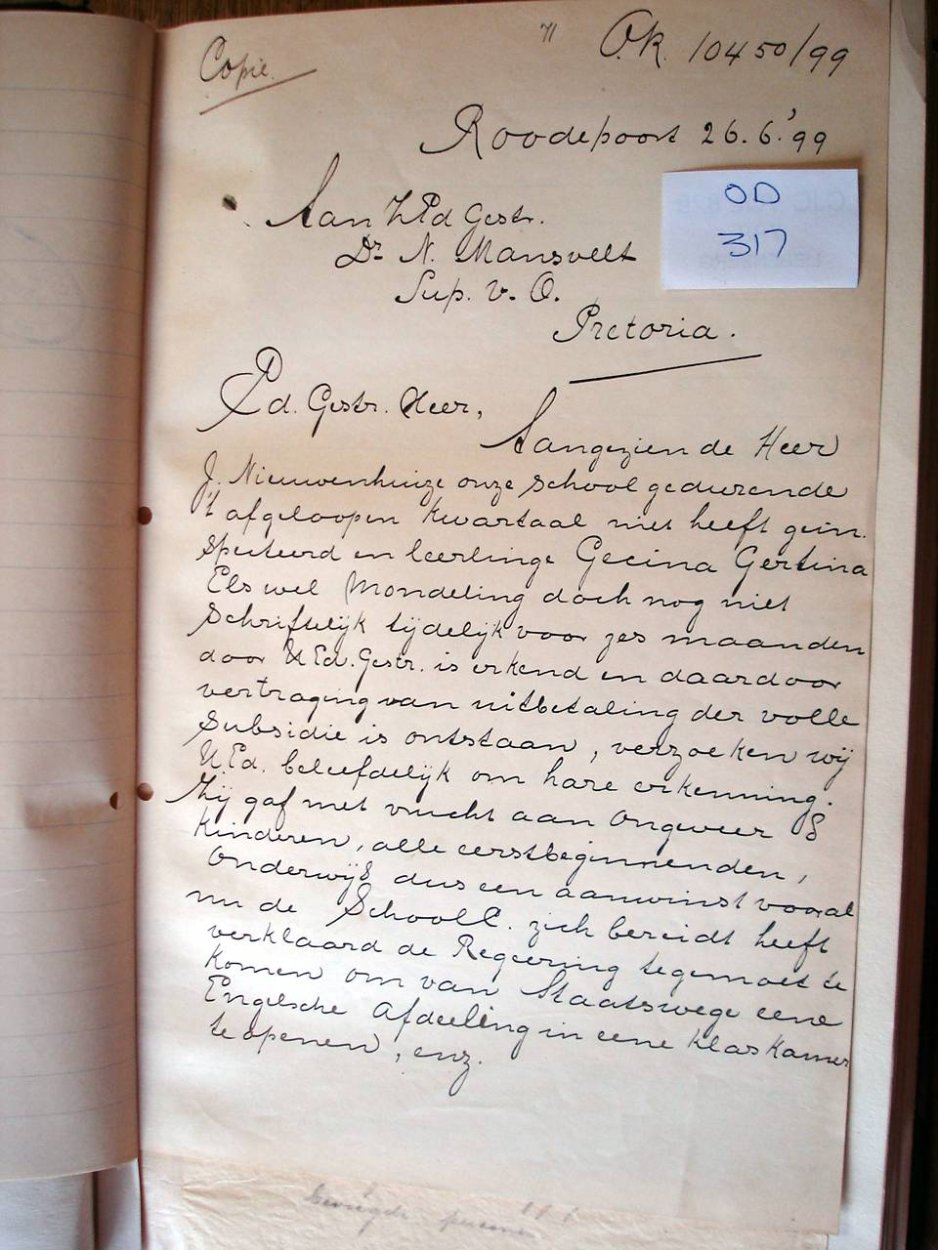 Copie.
71
O.R. 10450/99
Roodepoort 26.6.'99
OD
317
Aan ZEd Gestr.
Dr. N. Mansvelt
Sup. v. O.
Pretoria.
Ed. Gestr. Heer,
Aangezien de Heer
J. Nieuwenhuize onze school gedurende
't afgeloopen kwartaal niet heeft gein-
specteerd en leerlinge Gecina Gertina
Els wel mondeling doch nog niet
schriftelijk tijdelijk voor zes maanden
door UEd. Gestr. is erkend en daardoor
vertraging van uitbetaling der volle
subsidie is ontstaan, verzoeken wij
U.Ed. beleefdelijk om hare erkenning.
Zij gaf met vrucht aan ongeveer 8
kinderen, alle eerstbeginnenden,
onderwijs dus een aanwinst vooral
nu de SchoolC. zich bereidt heeft
verklaard de Regeering tegemoet te
komen om van Staatswege eene
Engelsche Afdeeling in eene klaskamer
te openen, enz.